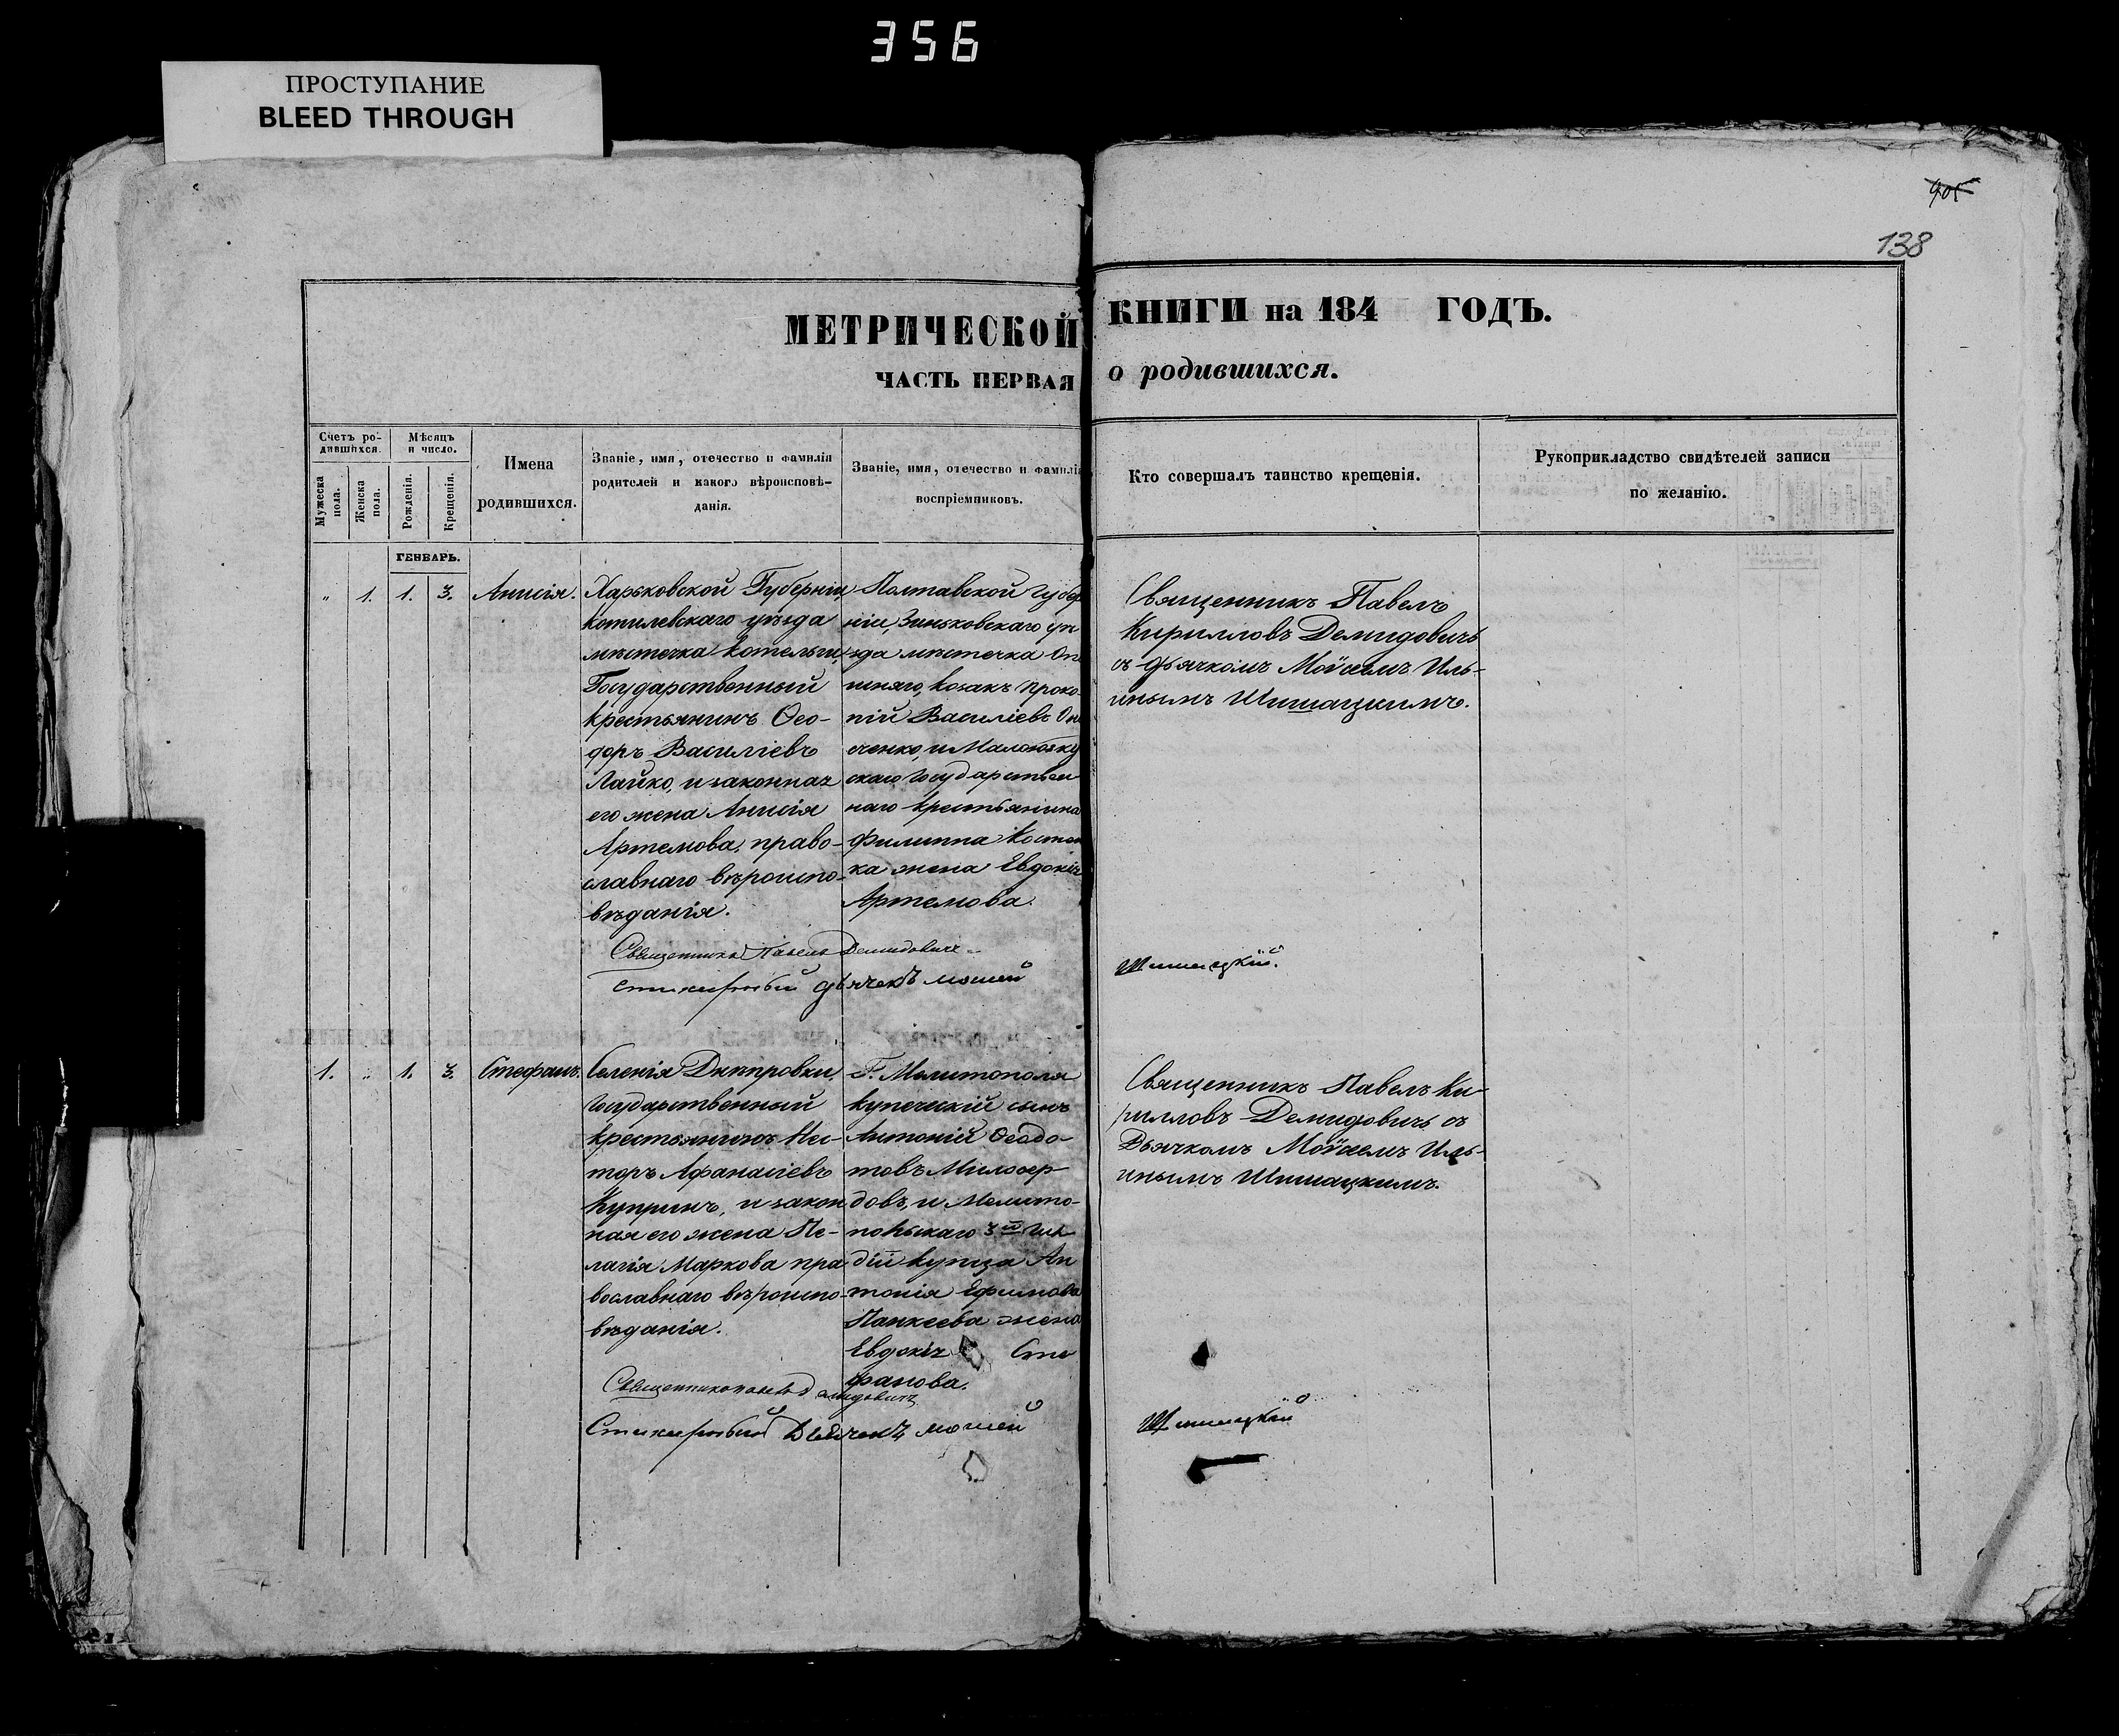 356
ПРОСТУПАНИЕ
BLEED THROUGH
905
138
МЕТРИЧЕСКОЙ КНИГИ на 184 ГОДЪ.
ЧАСТЬ ПЕРВАЯ о родившихся.
Счетъ ро-
дившихся.
Мужеска пола.
Женска пола.
Мѣсяцъ
и число.
Рожденія.
Крещенія.
Имена
родившихся.
Званіе, имя, отечество и фамилія
родителей и какого вѣроисповѣ-
данія.
Званіе, имя, отечество и фамилія
воспріемниковъ.
Кто совершалъ таинство крещенія.
Рукоприкладство свидѣтелей записи
по желанію.
ГЕНВАРЬ.
" 1. 1. 3. Анисія.
Харьковской Губерніи,
Котилевскаго уѣзда
мѣстечка Котельги,
Государственный
крестьянинъ Ѳео-
доръ Василіевъ
Лайко, и законная
его жена Анисія
Артемова, право-
славнаго вѣроиспо-
вѣданія.
Полтавской Губер
ніи, Зиньковскаго уѣ
зда мѣстечка Оп
шняго, козакъ Проко
пій Василіевъ
сченко, и
скаго Государствен
наго крестьянина
Филиппа Костен
ка жена Евдокія
Артемова.
Священникъ Павелъ
Кирилловъ Демидовичъ
съ дьячкомъ Моѵсеемъ Иль-
инымъ Шишацкимъ.
Священникъ Павелъ Демидовичъ
Стихарный дьячекъ Моисей Шишацкій.
1. " 1. 3. Стефанъ.
Селенія Днѣпровки,
Государственный
крестьянинъ Нес-
торъ Афанасіевъ
Купринъ, и закон
ная его жена Пе-
лагія Маркова пра
вославнаго вѣроиспо-
вѣданія.
Г. Мелитополя
купеческій сынъ
Антоній Ѳеодо-
товъ Милосер-
довъ, и Мелито-
польскаго 3й гил
діи купца Ан
тонія Ефимова
Панкеева жена
Евдокія Сте
фанова.
Священникъ Павелъ Ки-
рилловъ Демидовичъ съ
Дьячкомъ Моѵсеемъ Иль-
инымъ Шишацкимъ.
Священникъ Павелъ Демидовичъ
Стихарный Дьячекъ Моисей Шишацкій